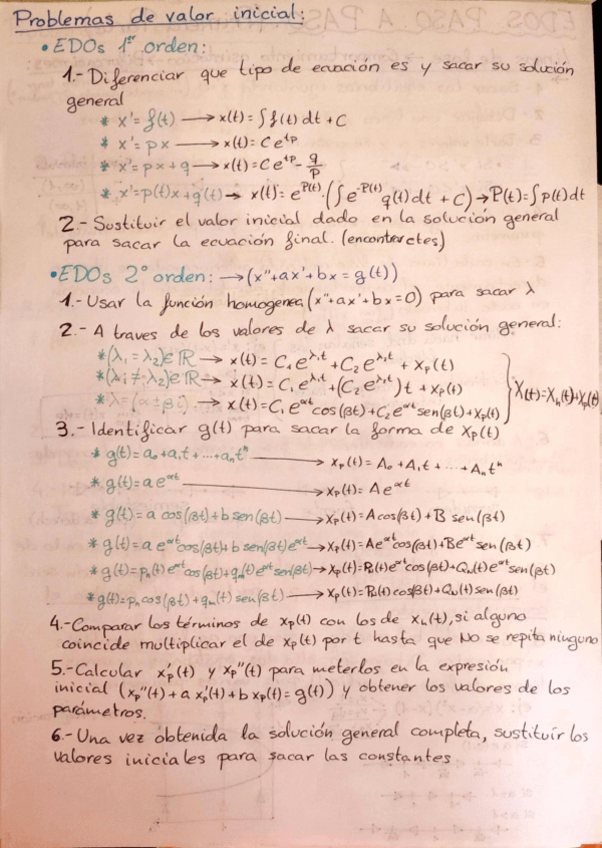 Problemas de valor inicial:
• EDOs 1er orden:
1.- Diferenciar que tipo de ecuación es y sacar su solución
general
* x' = f(t) → x(t) = ∫f(t) dt + C
* x' = px → x(t) = C e^{tp}
* x' = px + q → x(t) = C e^{tp} - q/p
* x' = p(t)x + q(t) → x(t) = e^{P(t)}·(∫e^{-P(t)} q(t) dt + C) → P(t) = ∫p(t) dt
2.- Sustituir el valor inicial dado en la solución general
para sacar la ecuación final. (encontar ctes)
• EDOs 2º orden: → (x'' + ax' + bx = g(t))
1.- Usar la función homogenea (x'' + ax' + bx = 0) para sacar λ
2.- A traves de los valores de λ sacar su solución general:
* (λ₁ = λ₂) ∈ ℝ → x(t) = C₁ e^{λ₁t} + C₂ e^{λ₂t} + Xp(t)
* (λ₁ ≠ λ₂) ∈ ℝ → x(t) = C₁ e^{λ₁t} + (C₂ e^{λ₂t}) t + Xp(t)
* λ = (α ± βi) → x(t) = C₁ e^{αt} cos(βt) + C₂ e^{αt} sen(βt) + Xp(t)
X(t) = Xh(t) + Xp(t)
3.- Identificar g(t) para sacar la forma de Xp(t)
* g(t) = a₀ + a₁t + ... + aₙtⁿ → Xp(t) = A₀ + A₁t + ... + Aₙtⁿ
* g(t) = a e^{αt} → Xp(t) = A e^{αt}
* g(t) = a cos(βt) + b sen(βt) → Xp(t) = A cos(βt) + B sen(βt)
* g(t) = a e^{αt} cos(βt) + b sen(βt) e^{αt} → Xp(t) = A e^{αt} cos(βt) + B e^{αt} sen(βt)
* g(t) = pₙ(t) e^{αt} cos(βt) + qₘ(t) e^{αt} sen(βt) → Xp(t) = Pₙ(t) e^{αt} cos(βt) + Qₙ(t) e^{αt} sen(βt)
* g(t) = pₙ cos(βt) + qₘ(t) sen(βt) → Xp(t) = Pₙ(t) cos(βt) + Qₙ(t) sen(βt)
4.- Comparar los términos de Xp(t) con los de Xh(t), si alguno
coincide multiplicar el de Xp(t) por t hasta que NO se repita ninguno
5.- Calcular Xp'(t) y Xp''(t) para meterlos en la expresión
inicial (Xp''(t) + a Xp'(t) + b Xp(t) = g(t)) y obtener los valores de los
parámetros.
6.- Una vez obtenida la solución general completa, sustituir los
valores iniciales para sacar las constantes